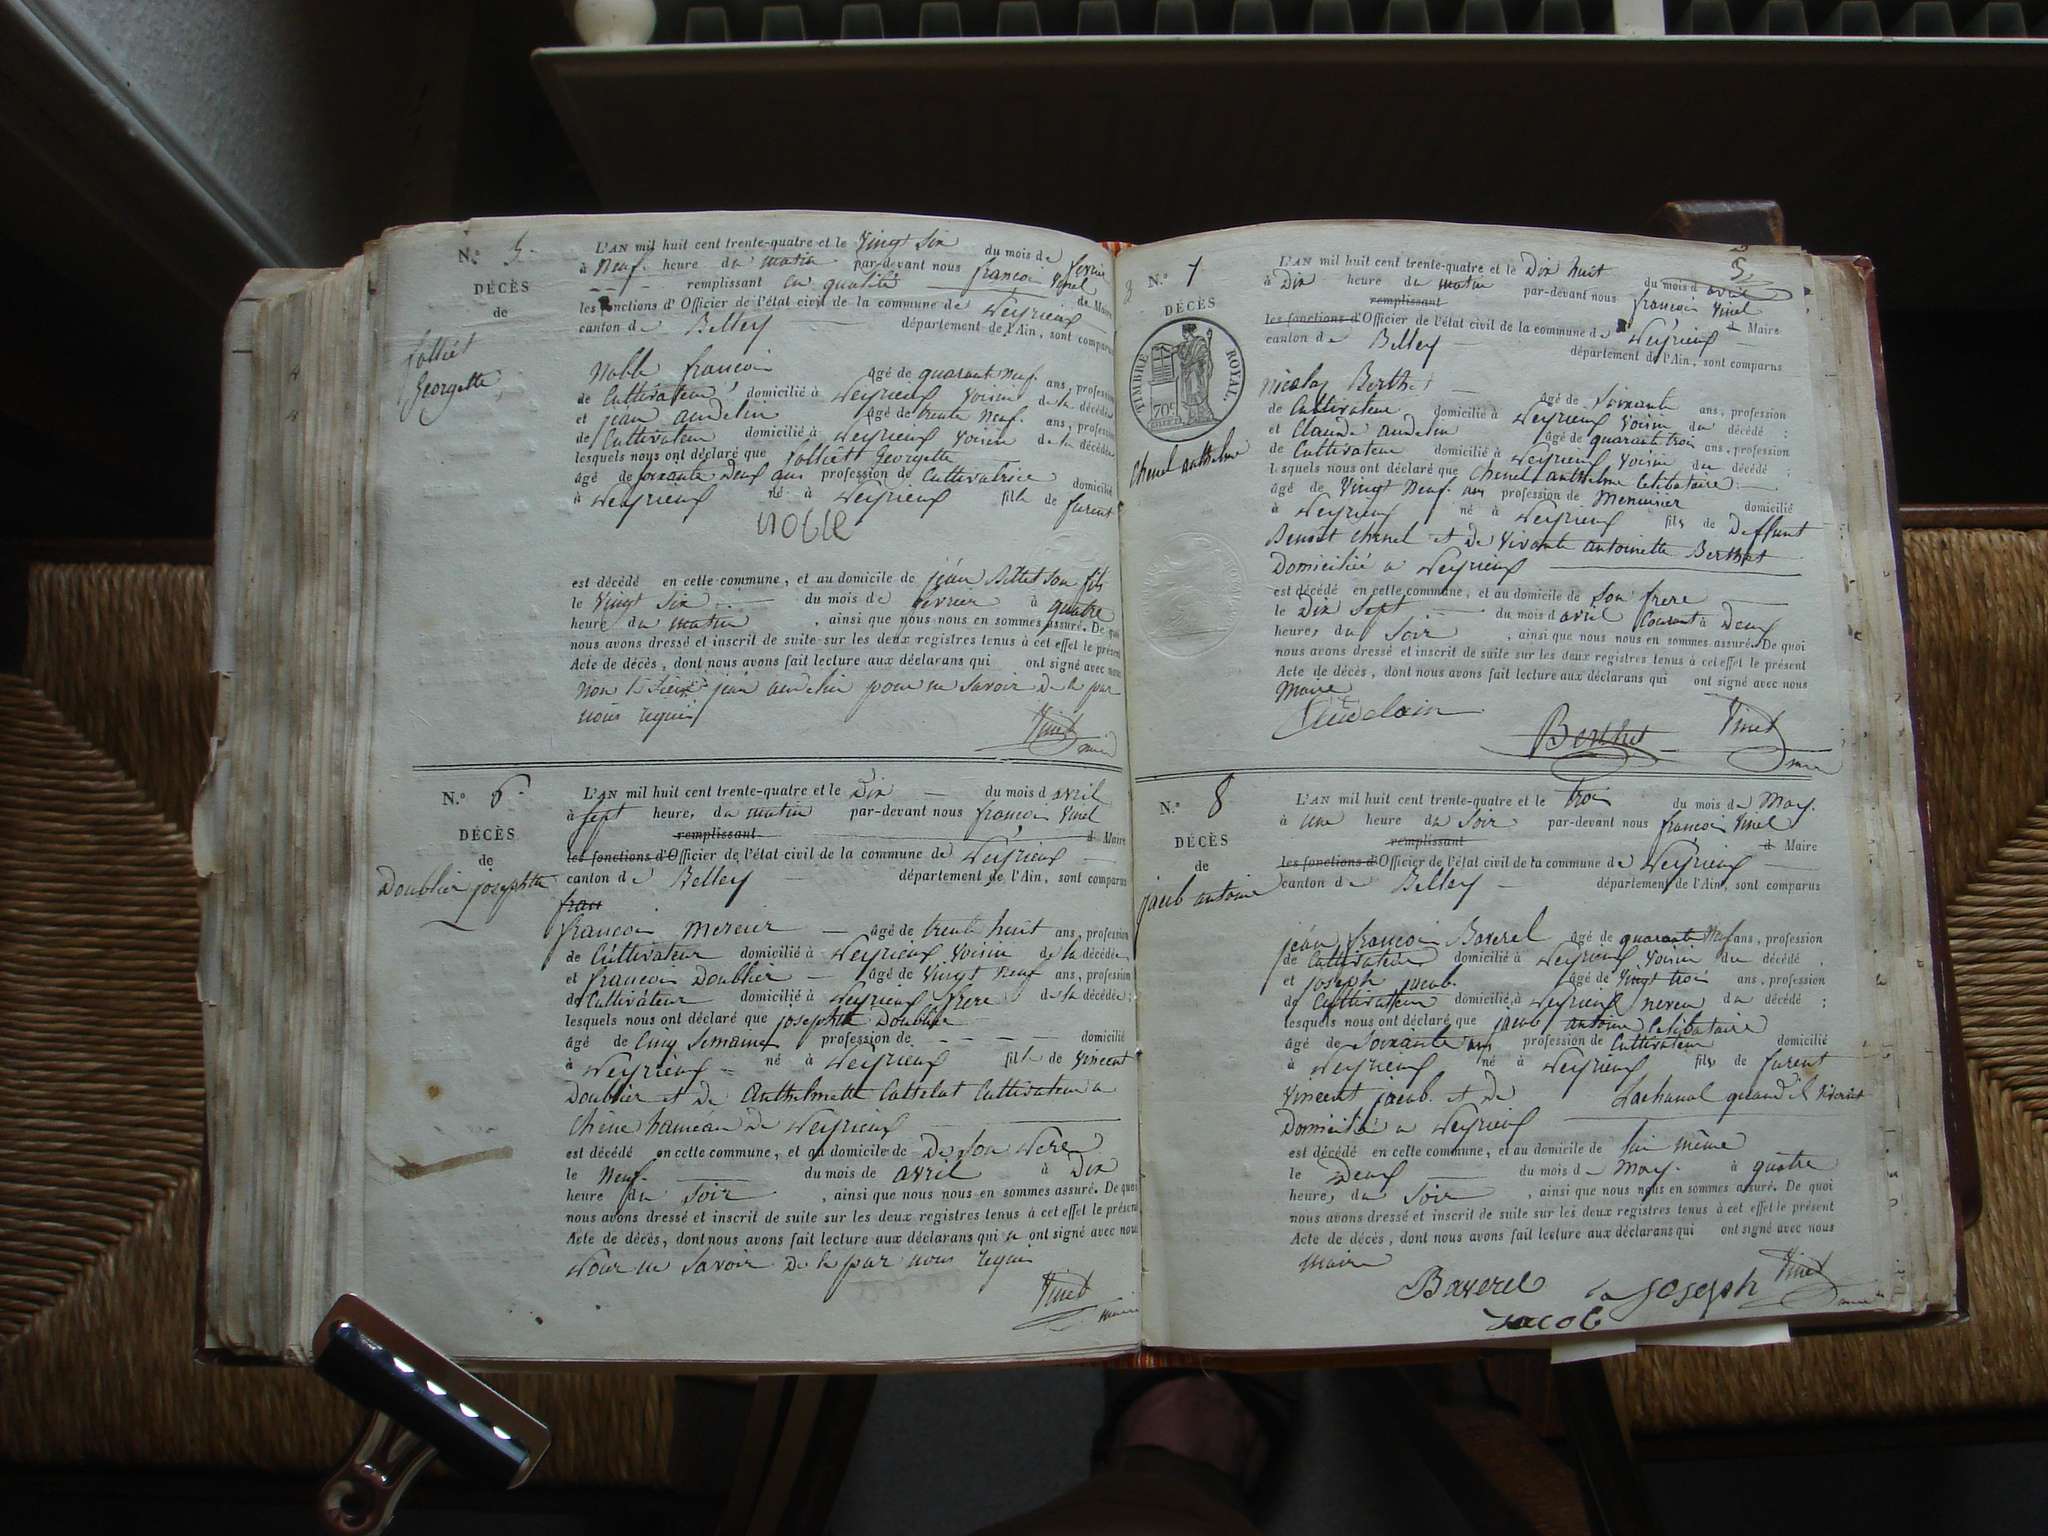 N.° 5.
DÉCÈS
de
Jolliet
Georgette
L'AN mil huit cent trente-quatre et le Vingt Six du mois de fevrier
à Neuf heure du matin par-devant nous françois Vinet
remplissant en qualité de Maire
les fonctions d'Officier de l'état civil de la commune de Peyrieux
canton de Belley département de l'Ain, sont comparus
Noble françois âgé de quarante neuf ans, profession
de Cultivateur domicilié à Peyrieux Voisin de la décédée
et jean audelin âgé de trente Neuf ans, profession
de Cultivateur domicilié à Peyrieux Voisin de la décédée
lesquels nous ont déclaré que Jolliet Georgette
âgé de soixante Deux ans profession de Cultivatrice domicilié
à Peyrieux né à Peyrieux fille de furent
noble
est décédé en cette commune, et au domicile de jean Billet son fils
le Vingt Six du mois de fevrier à quatre
heure du matin, ainsi que nous nous en sommes assuré. De quoi
nous avons dressé et inscrit de suite sur les deux registres tenus à cet effet le présent
Acte de décès, dont nous avons fait lecture aux déclarans qui ont signé avec nous
non le Sieur jean audelin pour ne savoir De le par
nous requis
Vinet
maire
N.° 6.
DÉCÈS
de
Doublier josephte
L'AN mil huit cent trente-quatre et le Dix du mois d avril
à sept heures du matin par-devant nous françois Vinet
remplissant d Maire
les fonctions d'Officier de l'état civil de la commune de Peyrieux
canton de Belley département de l'Ain, sont comparus
fran
françois mercier âgé de trente huit ans, profession
de Cultivateur domicilié à Peyrieux Voisin de la décédée
et françois Doublier âgé de Vingt neuf ans, profession
de Cultivateur domicilié à Peyrieux frere de la décédée;
lesquels nous ont déclaré que josephte Doublier
âgé de Cinq Semaines profession de domicilié
à Peyrieux né à Peyrieux fille de Vincent
Doublier et de Anthelmette Cattelat Cultivateur a
Chêne hameau De Peyrieux
est décédé en cette commune, et au domicile de De Son Pere
le Neuf du mois de avril à Dix
heure du Soir, ainsi que nous nous en sommes assuré. De quoi
nous avons dressé et inscrit de suite sur les deux registres tenus à cet effet le présent
Acte de décès, dont nous avons fait lecture aux déclarans qui n ont signé avec nous
Pour ne Savoir De le par nous requis
Vinet
maire
N.° 7
DÉCÈS
TIMBRE ROYAL.
70c
Chenel anthelme
L'AN mil huit cent trente-quatre et le Dix huit du mois d avril
à Dix heure du matin par-devant nous françois Vinet
remplissant d Maire
les fonctions d'Officier de l'état civil de la commune de Peyrieux
canton de Belley département de l'Ain, sont comparus
Nicolas Berthet âgé de Soixante ans, profession
de Cultivateur domicilié à Peyrieux Voisin du décédé;
et Claude audelin âgé de quarante trois ans, profession
de Cultivateur domicilié à Peyrieux Voisin du décédé;
lesquels nous ont déclaré que Chenel anthelme Celibataire
âgé de Vingt Neuf ans profession de Menuisier domicilié
à Peyrieux né à Peyrieux fils de Deffunt
Benoit Chenel et De Vivante antoinette Berthet
Domiciliée a Peyrieux
est décédé en cette commune, et au domicile de Son frere
le Dix Sept du mois d avril Courant à Deux
heures du Soir, ainsi que nous nous en sommes assuré. De quoi
nous avons dressé et inscrit de suite sur les deux registres tenus à cet effet le présent
Acte de décès, dont nous avons fait lecture aux déclarans qui ont signé avec nous
Maire
Audelain
Berthet
Vinet
maire
N.° 8
DÉCÈS
de
jacob antoine
L'AN mil huit cent trente-quatre et le trois du mois de May.
à une heure du Soir par-devant nous françois Vinet
remplissant d Maire
les fonctions d'Officier de l'état civil de la commune de Peyrieux
canton de Belley département de l'Ain, sont comparus
jean françois Baverel âgé de quarante Neuf ans, profession
de Cultivateur domicilié à Peyrieux Voisin du décédé
et joseph jacob. âgé de Vingt trois ans, profession
de Cultivateur domicilié à Peyrieux neveu du décédé;
lesquels nous ont déclaré que jacob antoine Celibataire
âgé de Soixante ans profession de Cultivateur domicilié
à Peyrieux né à Peyrieux fils de furent
Vincent jacob. et De Lachanal quand il Vivoint
Domicilié a Peyrieux
est décédé en cette commune, et au domicile de lui même
le Deux du mois de May. à quatre
heures du Soir, ainsi que nous nous en sommes assuré. De quoi
nous avons dressé et inscrit de suite sur les deux registres tenus à cet effet le présent
Acte de décès, dont nous avons fait lecture aux déclarans qui ont signé avec nous
maire
Baverel
Joseph
Vinet
maire
Jacob